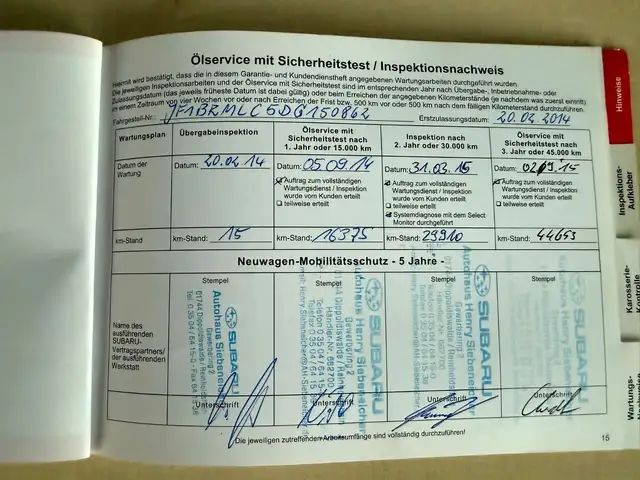 Ölservice mit Sicherheitstest / Inspektionsnachweis
Hiermit wird bestätigt, dass die in diesem Garantie- und Kundendienstheft angegebenen Wartungsarbeiten durchgeführt wurden.
Die jeweiligen Inspektionsarbeiten und der Ölservice mit Sicherheitstest sind im entsprechenden Jahr nach Übergabe-, Inbetriebnahme- oder
Zulassungsdatum (das jeweils früheste Datum ist dabei gültig) oder beim Erreichen der angegebenen Kilometerstände (je nachdem was zuerst eintritt)
in einem Zeitraum von vier Wochen vor oder nach Erreichen der Frist bzw. 500 km vor oder 500 km nach dem fälligen Kilometerstand durchzuführen.
Fahrgestell-Nr.: JF1BRMLC5DG150862 Erstzulassungsdatum: 20.02.2014
Wartungsplan Übergabeinspektion Ölservice mit Sicherheitstest nach 1. Jahr oder 15.000 km Inspektion nach 2. Jahr oder 30.000 km Ölservice mit Sicherheitstest nach 3. Jahr oder 45.000 km
Datum der Wartung Datum: 20.02.14 Datum: 05.09.14 Datum: 31.03.15 Datum:
Auftrag zum vollständigen Wartungsdienst / Inspektion wurde vom Kunden erteilt
teilweise erteilt
Auftrag zum vollständigen Wartungsdienst / Inspektion wurde vom Kunden erteilt
teilweise erteilt
Systemdiagnose mit dem Select Monitor durchgeführt
Auftrag zum vollständigen Wartungsdienst / Inspektion wurde vom Kunden erteilt
teilweise erteilt
km-Stand km-Stand: 15 km-Stand: 16375 km-Stand: 29910 km-Stand: 44653
Neuwagen-Mobilitätsschutz - 5 Jahre -
Stempel Stempel Stempel Stempel
Name des ausführenden SUBARU-Vertragspartners/ der ausführenden Werkstatt
SUBARU
Autohaus Henry Siebeneicher
Gewerbering 2
01744 Dippoldiswalde/
SUBARU
Autohaus Henry Siebeneicher
Gewerbering 2
01744 Dippoldiswalde/
Händler-Nr. 662700
SUBARU
Autohaus Henry Siebeneicher
Gewerbering 2
SUBARU
Unterschrift Unterschrift Unterschrift Unterschrift
Die jeweiligen zutreffenden Arbeitsumfänge sind vollständig durchzuführen!
15
Hinweise
Inspektions-
Aufkleber
Karosserie-
Kontrolle
Wartungs-